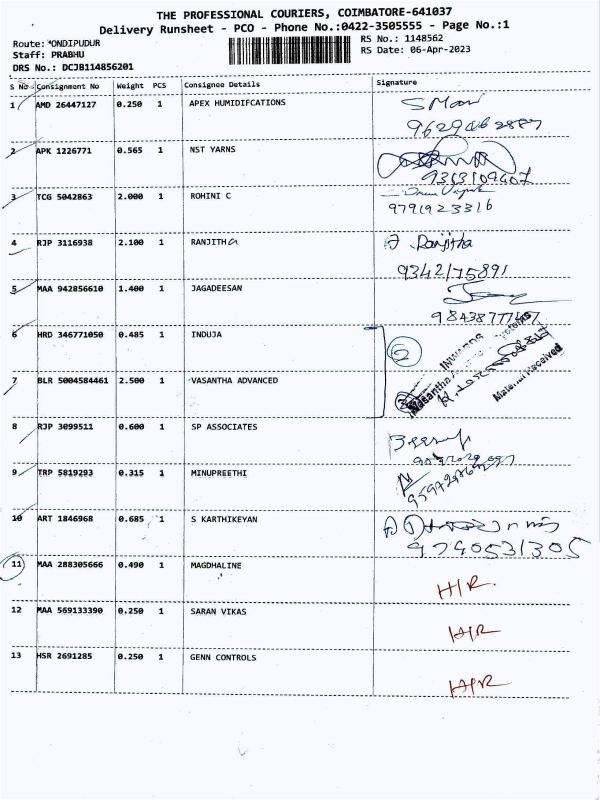 THE PROFESSIONAL COURIERS, COIMBATORE-641037
Delivery Runsheet - PCO - Phone No.:0422-3505555 - Page No.:1
Route: *ONDIPUDUR
RS No.: 1148562
Staff: PRABHU
RS Date: 06-Apr-2023
DRS No.: DCJB114856201
S No Consignment No Weight PCS Consignee Details Signature
1 AMD 26447127 0.250 1 APEX HUMIDIFCATIONS
S Mani
2 APK 1226771 0.565 1 NST YARNS
9363109407
3 TCG 5042863 2.000 1 ROHINI C
9791923316
4 RJP 3116938 2.100 1 RANJITHA
A. Ranjitha
9342175891
5 MAA 942856610 1.400 1 JAGADEESAN
6 HRD 346771050 0.485 1 INDUJA
2
INWARDS
7 BLR 5004584461 2.500 1 VASANTHA ADVANCED
Vasantha Systems
Material Received
8 RJP 3099511 0.600 1 SP ASSOCIATES
9 TRP 5819293 0.315 1 MINUPREETHI
10 ART 1846968 0.685 1 S KARTHIKEYAN
9740531305
11 MAA 288305666 0.490 1 MAGDHALINE
H/R.
12 MAA 569133390 0.250 1 SARAN VIKAS
H/R
13 HSR 2691285 0.250 1 GENN CONTROLS
H/R